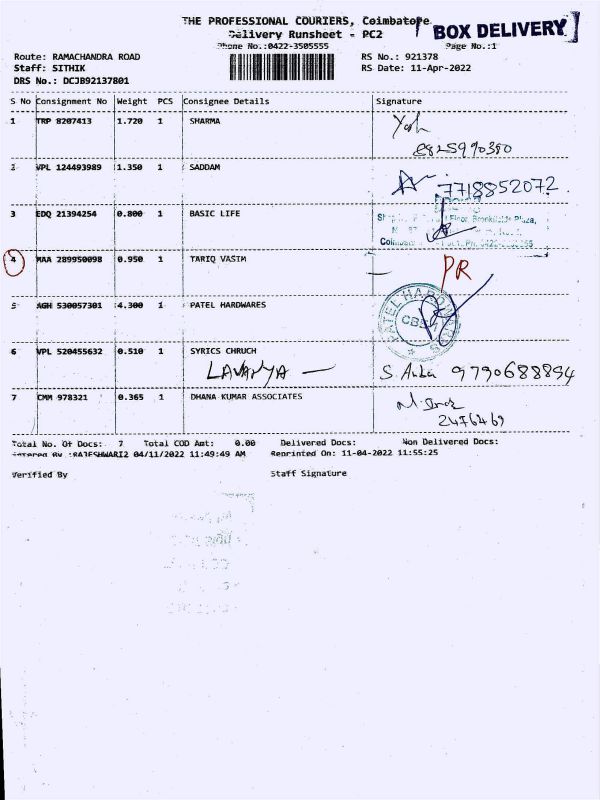 THE PROFESSIONAL COURIERS, Coimbatore
BOX DELIVERY
Delivery Runsheet - PC2
Phone No.:0422-3505555
Page No.:1
Route: RAMACHANDRA ROAD
RS No.: 921378
Staff: SITHIK
RS Date: 11-Apr-2022
DRS No.: DCJB92137801
S No Consignment No Weight PCS Consignee Details Signature
1 TRP 8207413 1.720 1 SHARMA
8825990380
2 VPL 124493989 1.350 1 SADDAM
7718852072.
3 EDQ 21394254 0.800 1 BASIC LIFE
Floor, Plaza,
4 MAA 289950098 0.950 1 TARIQ VASIM
PR
5 AGH 530057301 4.300 1 PATEL HARDWARES
PATEL HARDWARES
6 VPL 520455632 0.510 1 SYRICS CHRUCH
LAVANYA —
9790688894
7 CMM 978321 0.365 1 DHANA KUMAR ASSOCIATES
2476469
Total No. Of Docs: 7 Total COD Amt: 0.00 Delivered Docs: Non Delivered Docs:
Entered By :RAJESHWARI2 04/11/2022 11:49:49 AM Reprinted On: 11-04-2022 11:55:25
Verified By Staff Signature